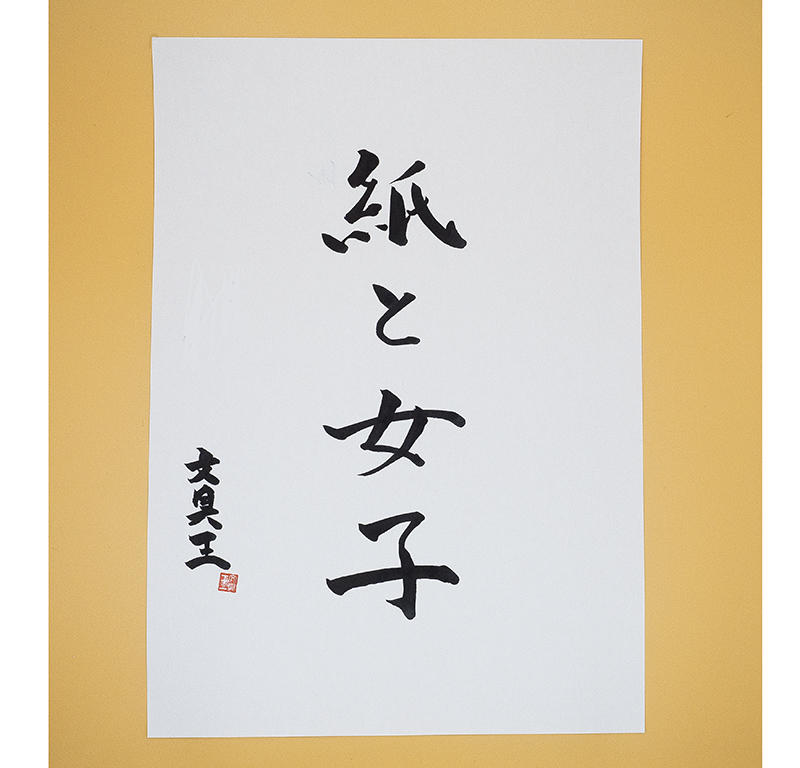 紙と女子
文具王